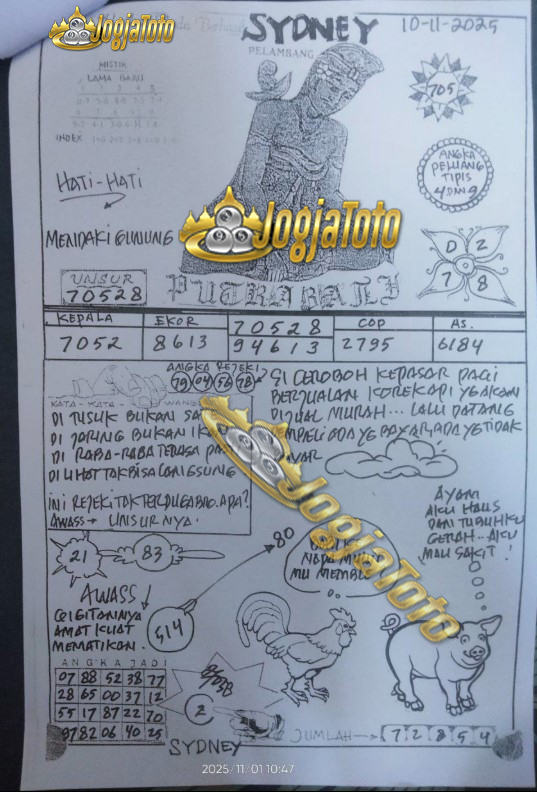 JogjaToto
SYDNEY
10-11-2025
PELAMBANG
MISTIK
LAMA BARU
INDEX
705
ANGKA
PELUANG
TIPIS
4 DAN 9
HATI-HATI
MENDAKI GUNUNG
JogjaToto
D 2
7 8
UNSUR
70528
PUTRA BALI
KEPALA EKOR 70528 COP AS.
7052 8613 94613 2795 6184
ANGKA REJEKI
79 04 56 78
SI CEROBOH KEPASAR PAGI
BERJUALAN KOREKAPI YG AKAN
DIJUAL MURAH... LALU DATANG
PEMBELI ADA YG BAYAR ADA YG TIDAK
BAYAR
KATA-KATA
DI TUSUK BUKAN
DI JARING BUKAN
DI RABA-RABA TERASA
DI LIHAT TAK BISA LANGSUNG
INI REJEKI TAK TERDUGA NO. APA?
AWASS → UNSURNYA.
JogjaToto
AYAM
AKU HAUS
DAN TUBUHKU
GERAH... AKU
MAU SAKIT!
21
83
80
MU
AWASS
GIGITANNYA
AMAT KUAT
MEMATIKAN.
514
ANGKA JADI
07 88 52 38 77
28 65 00 37 12
55 17 87 22 70
97 82 06 40 25
2
SYDNEY
JUMLAH → 7 2 8 5 4
2025/11/01 10:47